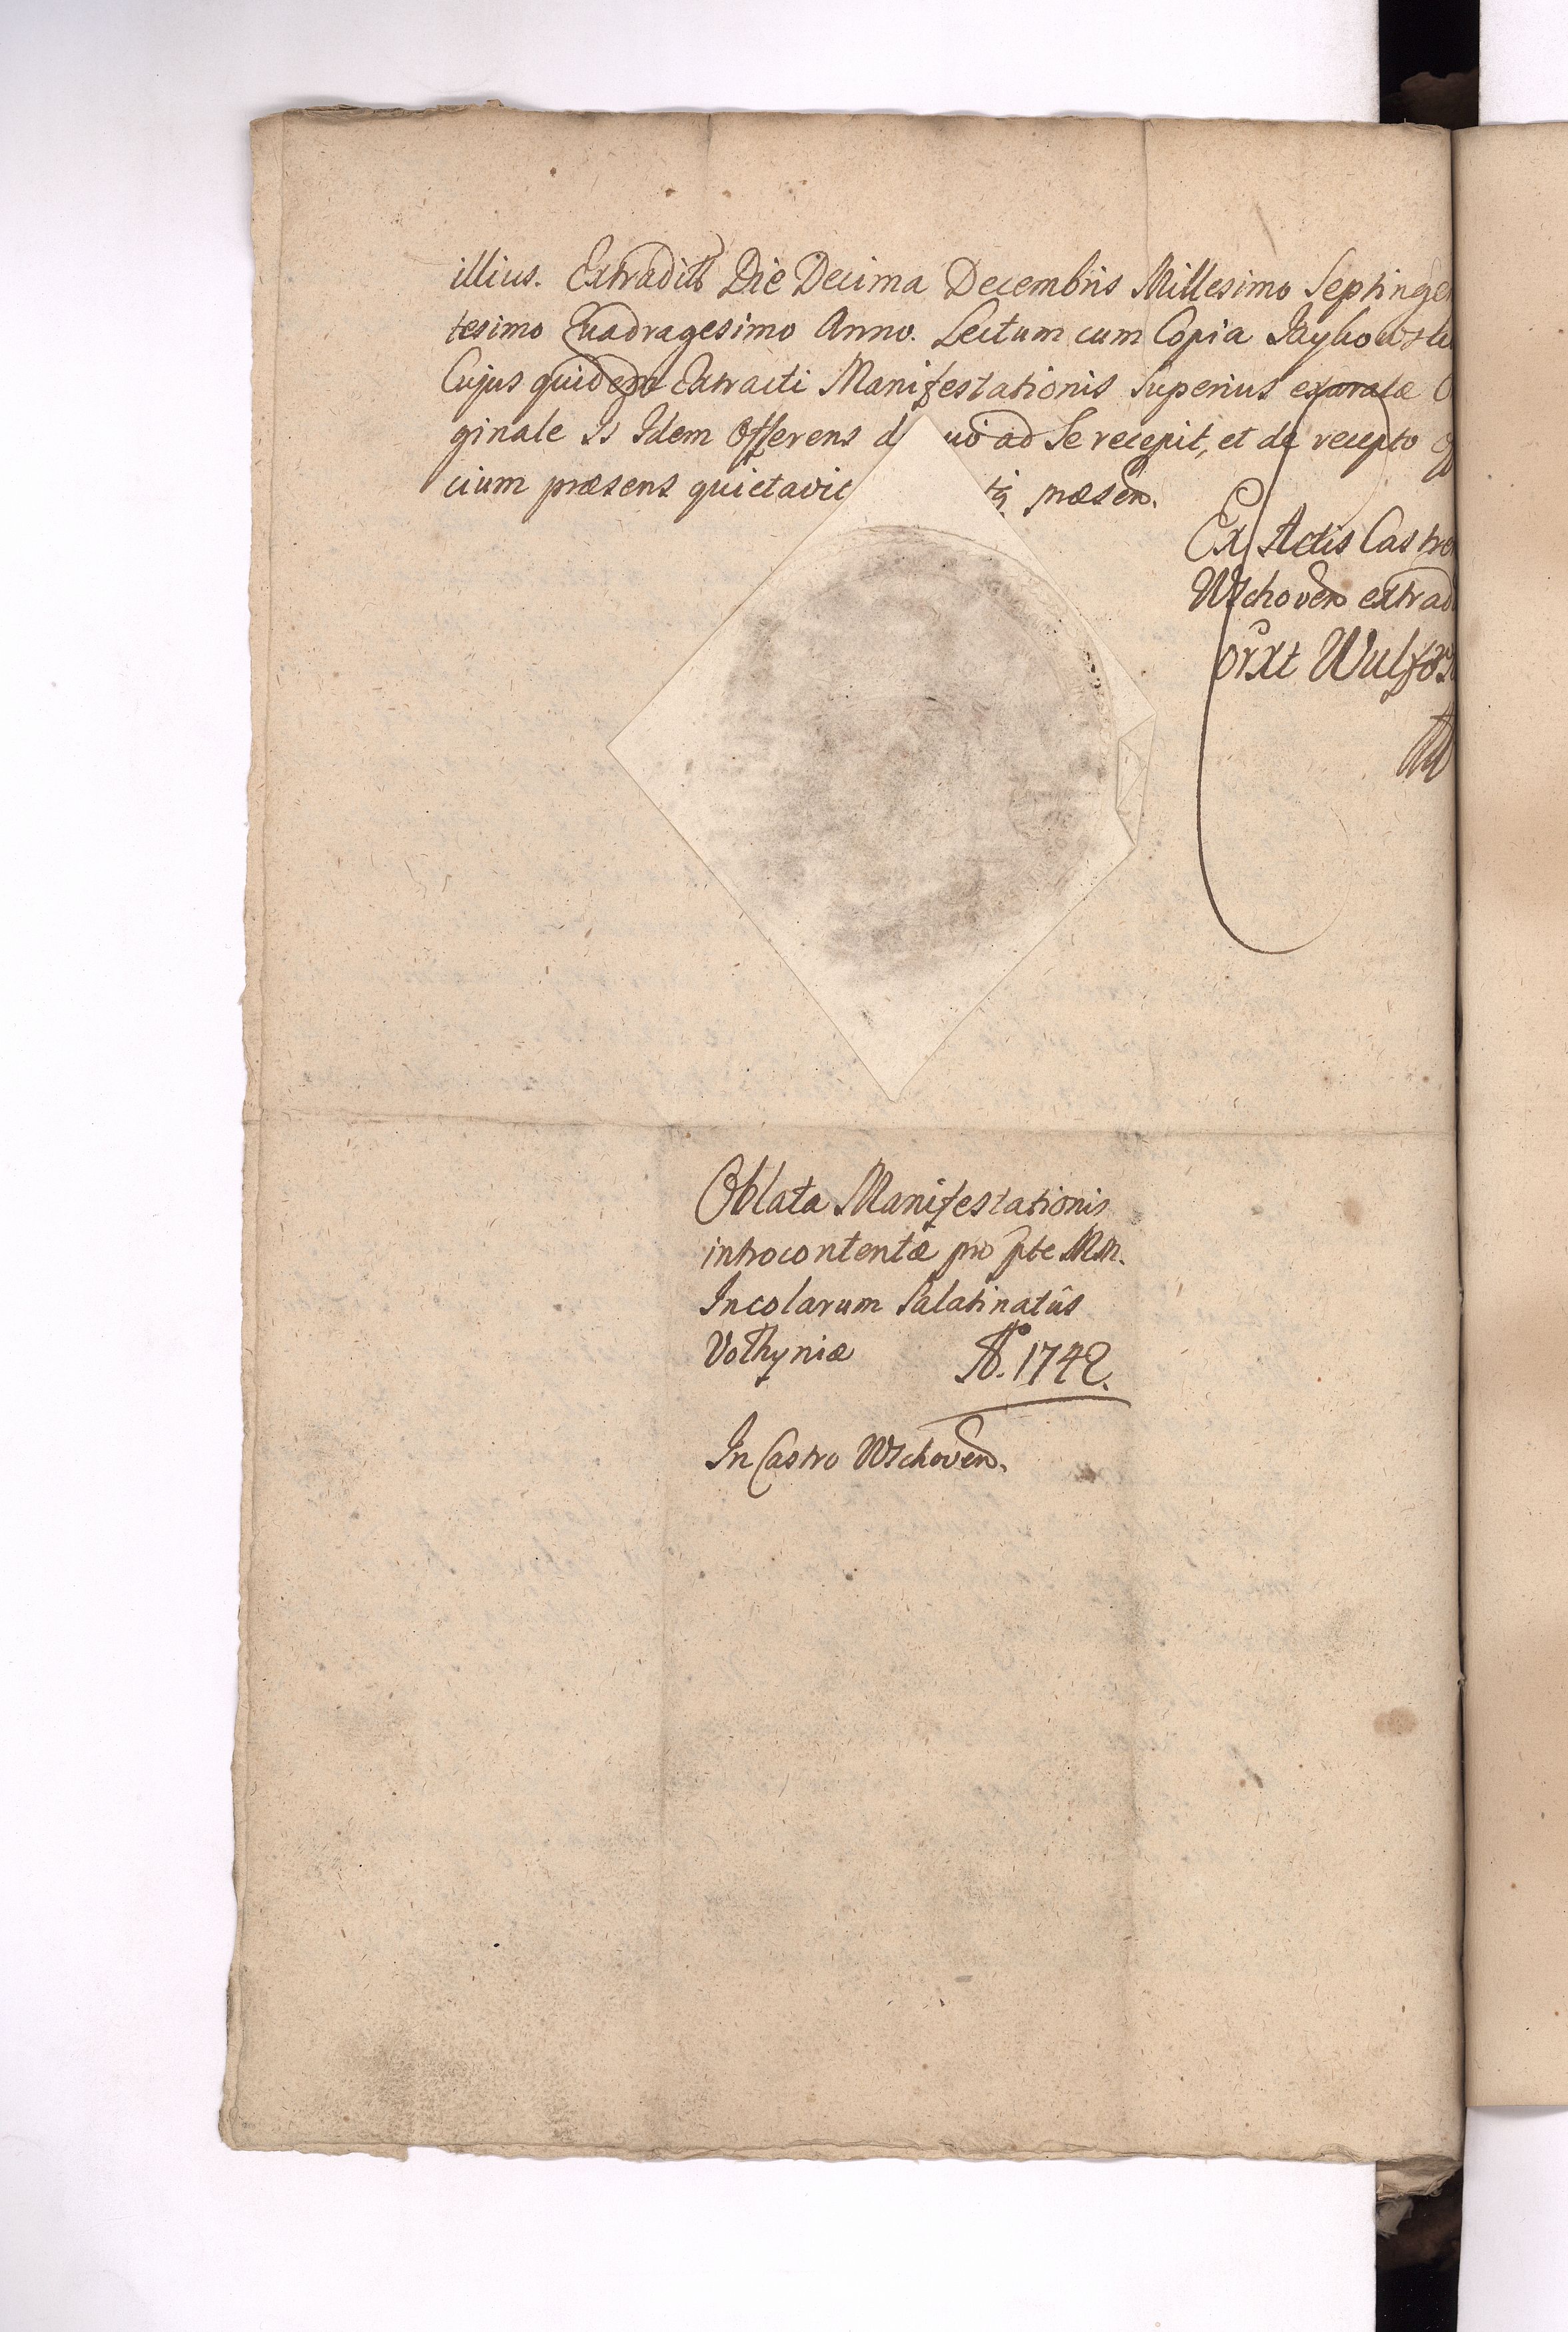 illius. Extradits Die Decima Decembris Millesimo Septinge
tesimo Quadragesimo Anno. Lectum cum Copia
Cujus quidem Extracti Manifestationis Superius exaratæ
ginale Is Idem Offerens d uo ad Se recepit, et de recepto
cium præsens quietavit præsen.
Ex Actis Castre
Wschoven extrad
Oblata Manifestationis
introcontentæ pro pte MM.
Incolarum Palatinatûs
Volhyniæ Ao. 1742.
In Castro Wschoven.